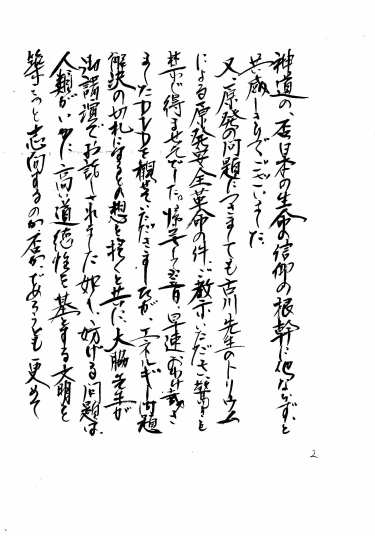 神道の、否日本の生命の信仰の根幹に他ならず、と
共感しきりでございました。
又、原発の問題につきましても古川先生のトリウム
による原発安全革命の件、ご教示いただき、驚きを
禁じ得ませんでした。帰宅して翌日、早速お分け戴き
ましたDVDを観せていただきましたが、エネルギー問題
解決の切札にするの想を抱くと共に、大脇先生が
御講演でお話しされました如く、妨げる問題は、
人類がいかに高い道徳性を基とする文明を
築こうと志向するのか否か、であろうとも更めて
2